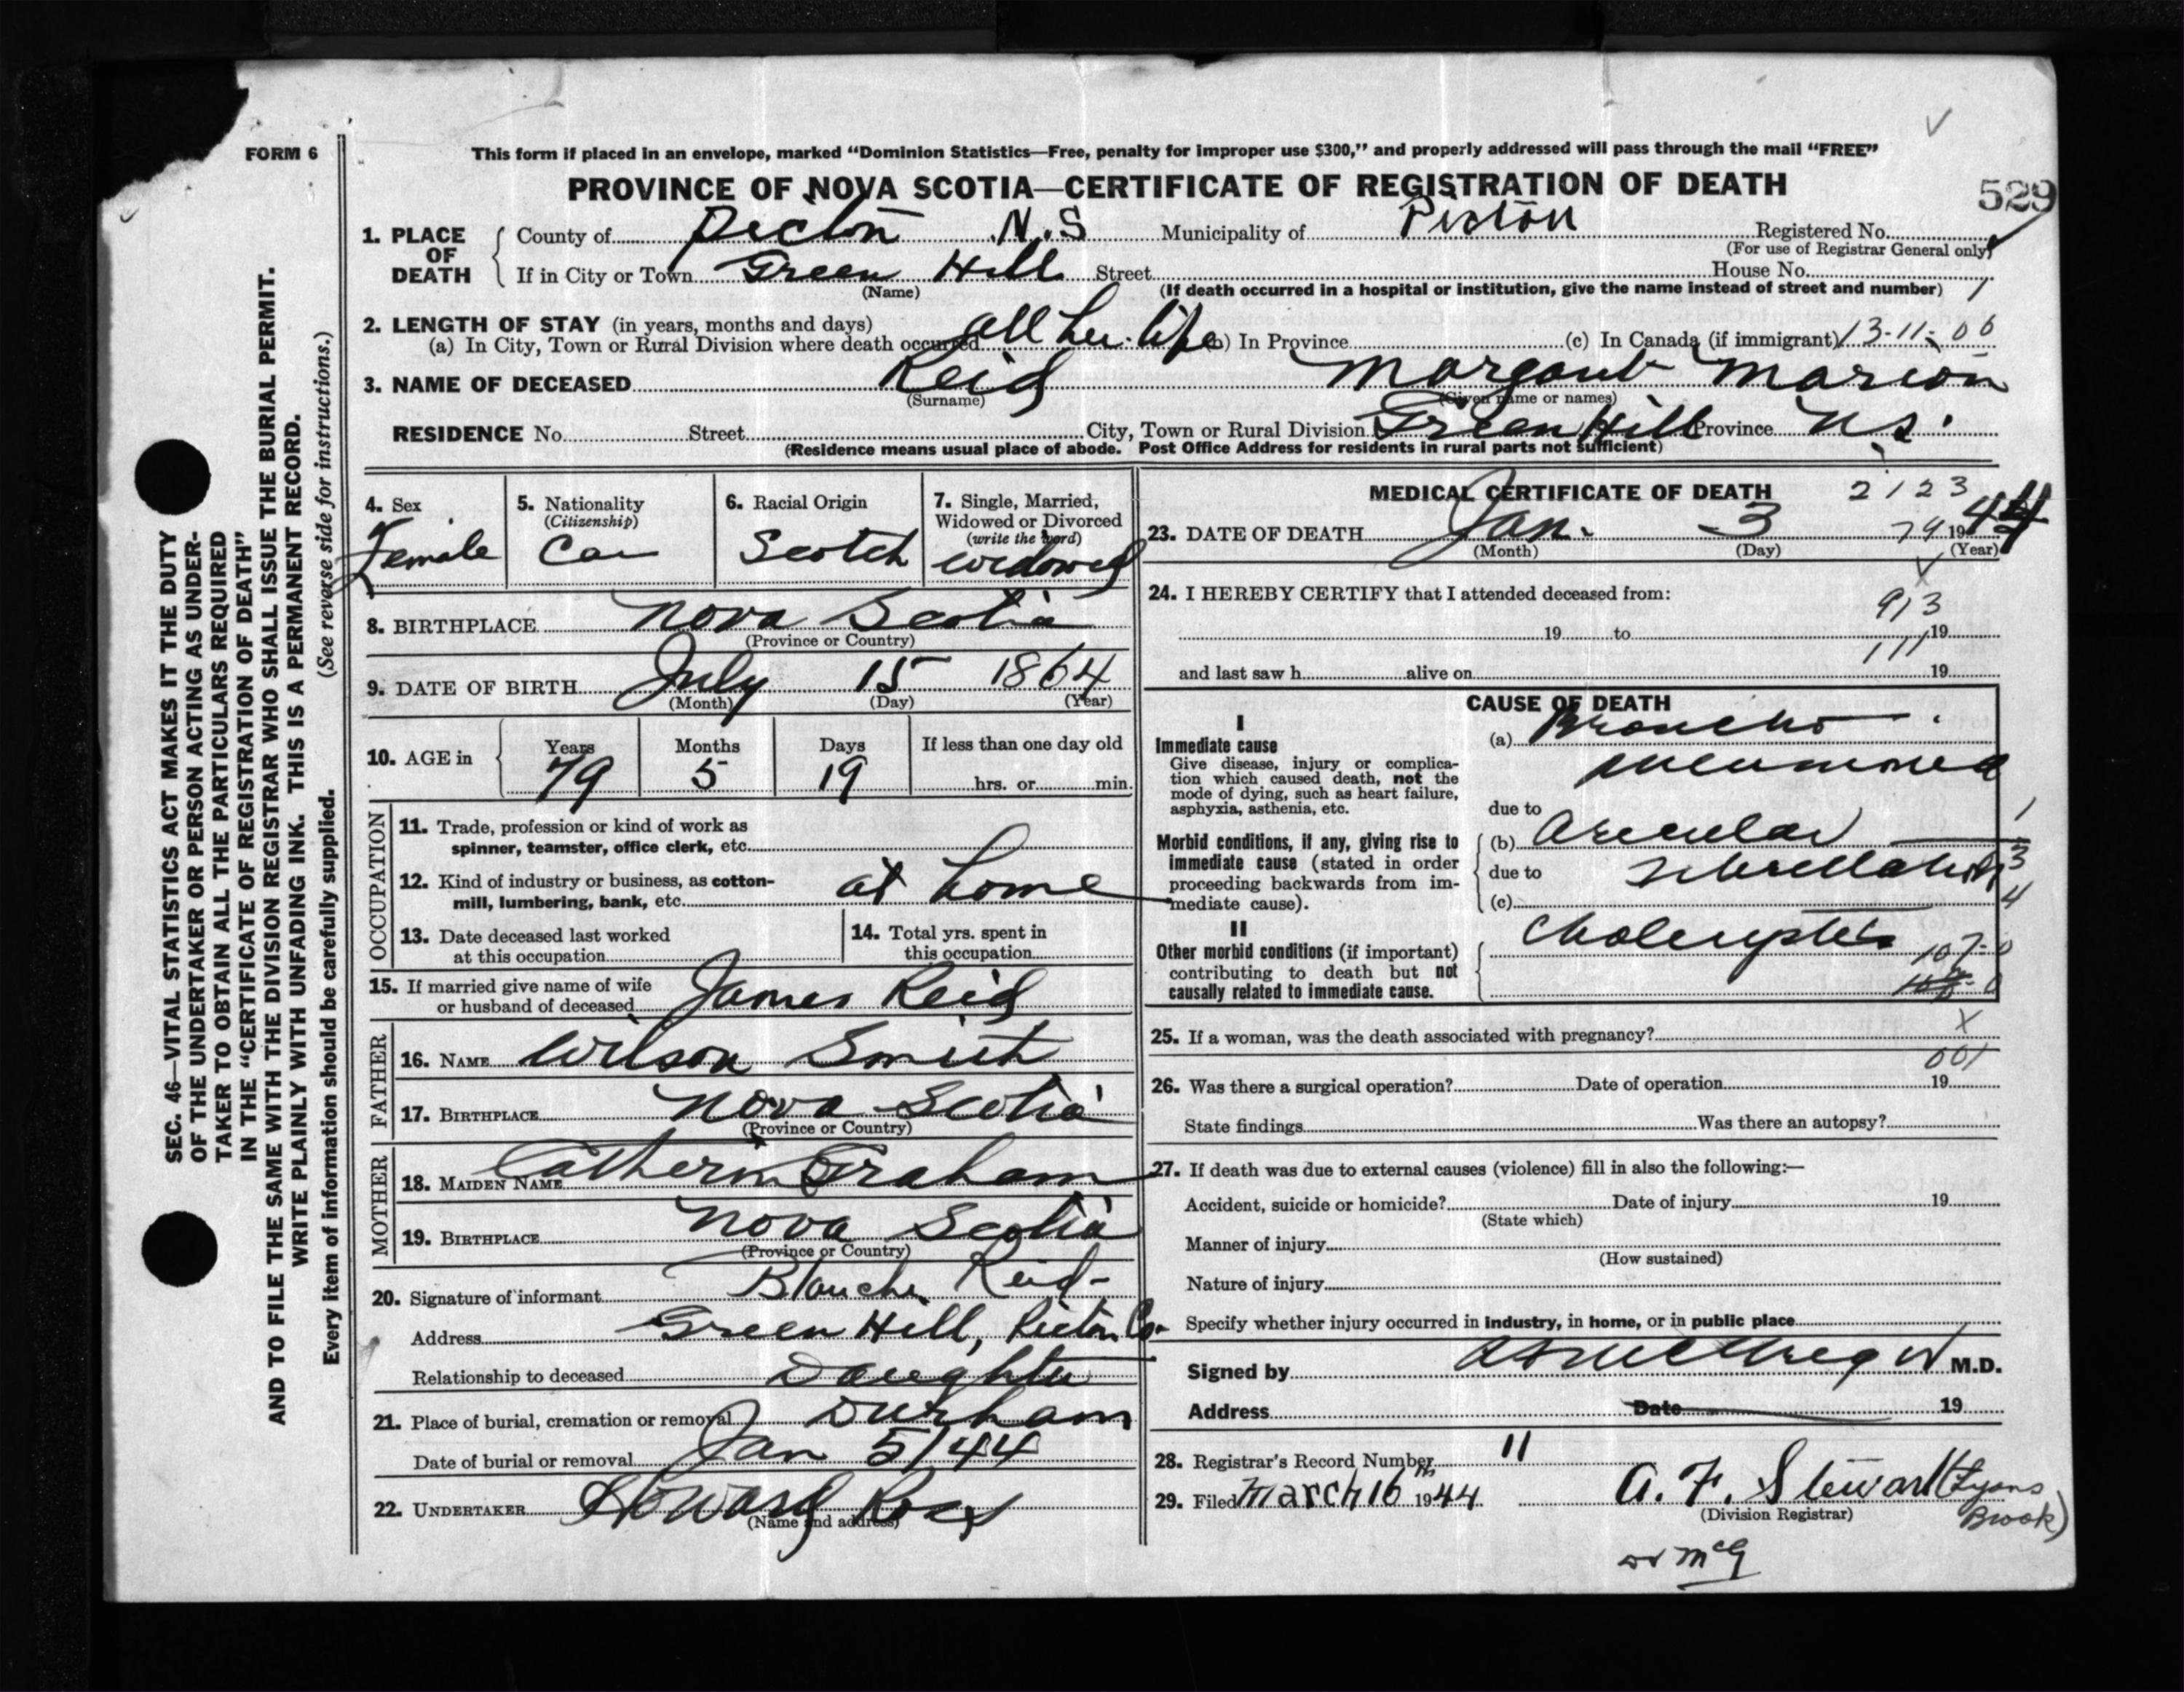 FORM 6
This form if placed in an envelope, marked "Dominion Statistics—Free, penalty for improper use $300," and properly addressed will pass through the mail "FREE"
PROVINCE OF NOVA SCOTIA—CERTIFICATE OF REGISTRATION OF DEATH
529
1. PLACE OF DEATH
County of Pictou N.S Municipality of Pictou Registered No.
(For use of Registrar General only)
If in City or Town Green Hill Street House No.
(Name) (If death occurred in a hospital or institution, give the name instead of street and number)
2. LENGTH OF STAY (in years, months and days)
(a) In City, Town or Rural Division where death occurred all her life (b) In Province (c) In Canada (if immigrant) 13-11-06
3. NAME OF DECEASED Reid Margaret Marion
(Surname) (Given name or names)
RESIDENCE No. Street City, Town or Rural Division Green Hill Province N.S.
(Residence means usual place of abode. Post Office Address for residents in rural parts not sufficient)
4. Sex Female
5. Nationality (Citizenship) Can
6. Racial Origin Scotch
7. Single, Married, Widowed or Divorced (write the word) widowed
8. BIRTHPLACE Nova Scotia
(Province or Country)
9. DATE OF BIRTH July 15 1864
(Month) (Day) (Year)
10. AGE in Years Months Days If less than one day old
79 5 19 hrs. or min.
OCCUPATION
11. Trade, profession or kind of work as
spinner, teamster, office clerk, etc.
12. Kind of industry or business, as cotton-
mill, lumbering, bank, etc. at home
13. Date deceased last worked
at this occupation
14. Total yrs. spent in
this occupation
15. If married give name of wife
or husband of deceased James Reid
FATHER
16. NAME Wilson Smith
17. BIRTHPLACE Nova Scotia
(Province or Country)
MOTHER
18. MAIDEN NAME Catherin Graham
19. BIRTHPLACE Nova Scotia
(Province or Country)
20. Signature of informant Blanche Reid
Address Green Hill, Pictou Co.
Relationship to deceased Daughter
21. Place of burial, cremation or removal Durham
Date of burial or removal Jan 5/44
22. UNDERTAKER Howard Ross
(Name and address)
MEDICAL CERTIFICATE OF DEATH 2123
23. DATE OF DEATH Jan. 3 79 1944
(Month) (Day) (Year)
24. I HEREBY CERTIFY that I attended deceased from:
913
19 to 19
111
and last saw h alive on 19
CAUSE OF DEATH
I
Immediate cause
Give disease, injury or complica-
tion which caused death, not the
mode of dying, such as heart failure,
asphyxia, asthenia, etc.
(a) Broncho
pneumonia
due to
Morbid conditions, if any, giving rise to
immediate cause (stated in order
proceeding backwards from im-
mediate cause).
(b) Auricular
due to fibrillation
(c)
1
3
4
II
Other morbid conditions (if important)
contributing to death but not
causally related to immediate cause.
107-0
25. If a woman, was the death associated with pregnancy? X
001
26. Was there a surgical operation? Date of operation 19
State findings Was there an autopsy?
27. If death was due to external causes (violence) fill in also the following:—
Accident, suicide or homicide? Date of injury 19
(State which)
Manner of injury
(How sustained)
Nature of injury
Specify whether injury occurred in industry, in home, or in public place
Signed by M.D.
Address Date 19
28. Registrar's Record Number 11
29. Filed March 16th 1944 A. F. Stewart (Lyons Brook)
(Division Registrar)
Dr McG
SEC. 46—VITAL STATISTICS ACT MAKES IT THE DUTY
OF THE UNDERTAKER OR PERSON ACTING AS UNDER-
TAKER TO OBTAIN ALL THE PARTICULARS REQUIRED
IN THE "CERTIFICATE OF REGISTRATION OF DEATH"
AND TO FILE THE SAME WITH THE DIVISION REGISTRAR WHO SHALL ISSUE THE BURIAL PERMIT.
WRITE PLAINLY WITH UNFADING INK. THIS IS A PERMANENT RECORD.
Every item of information should be carefully supplied. (See reverse side for instructions.)